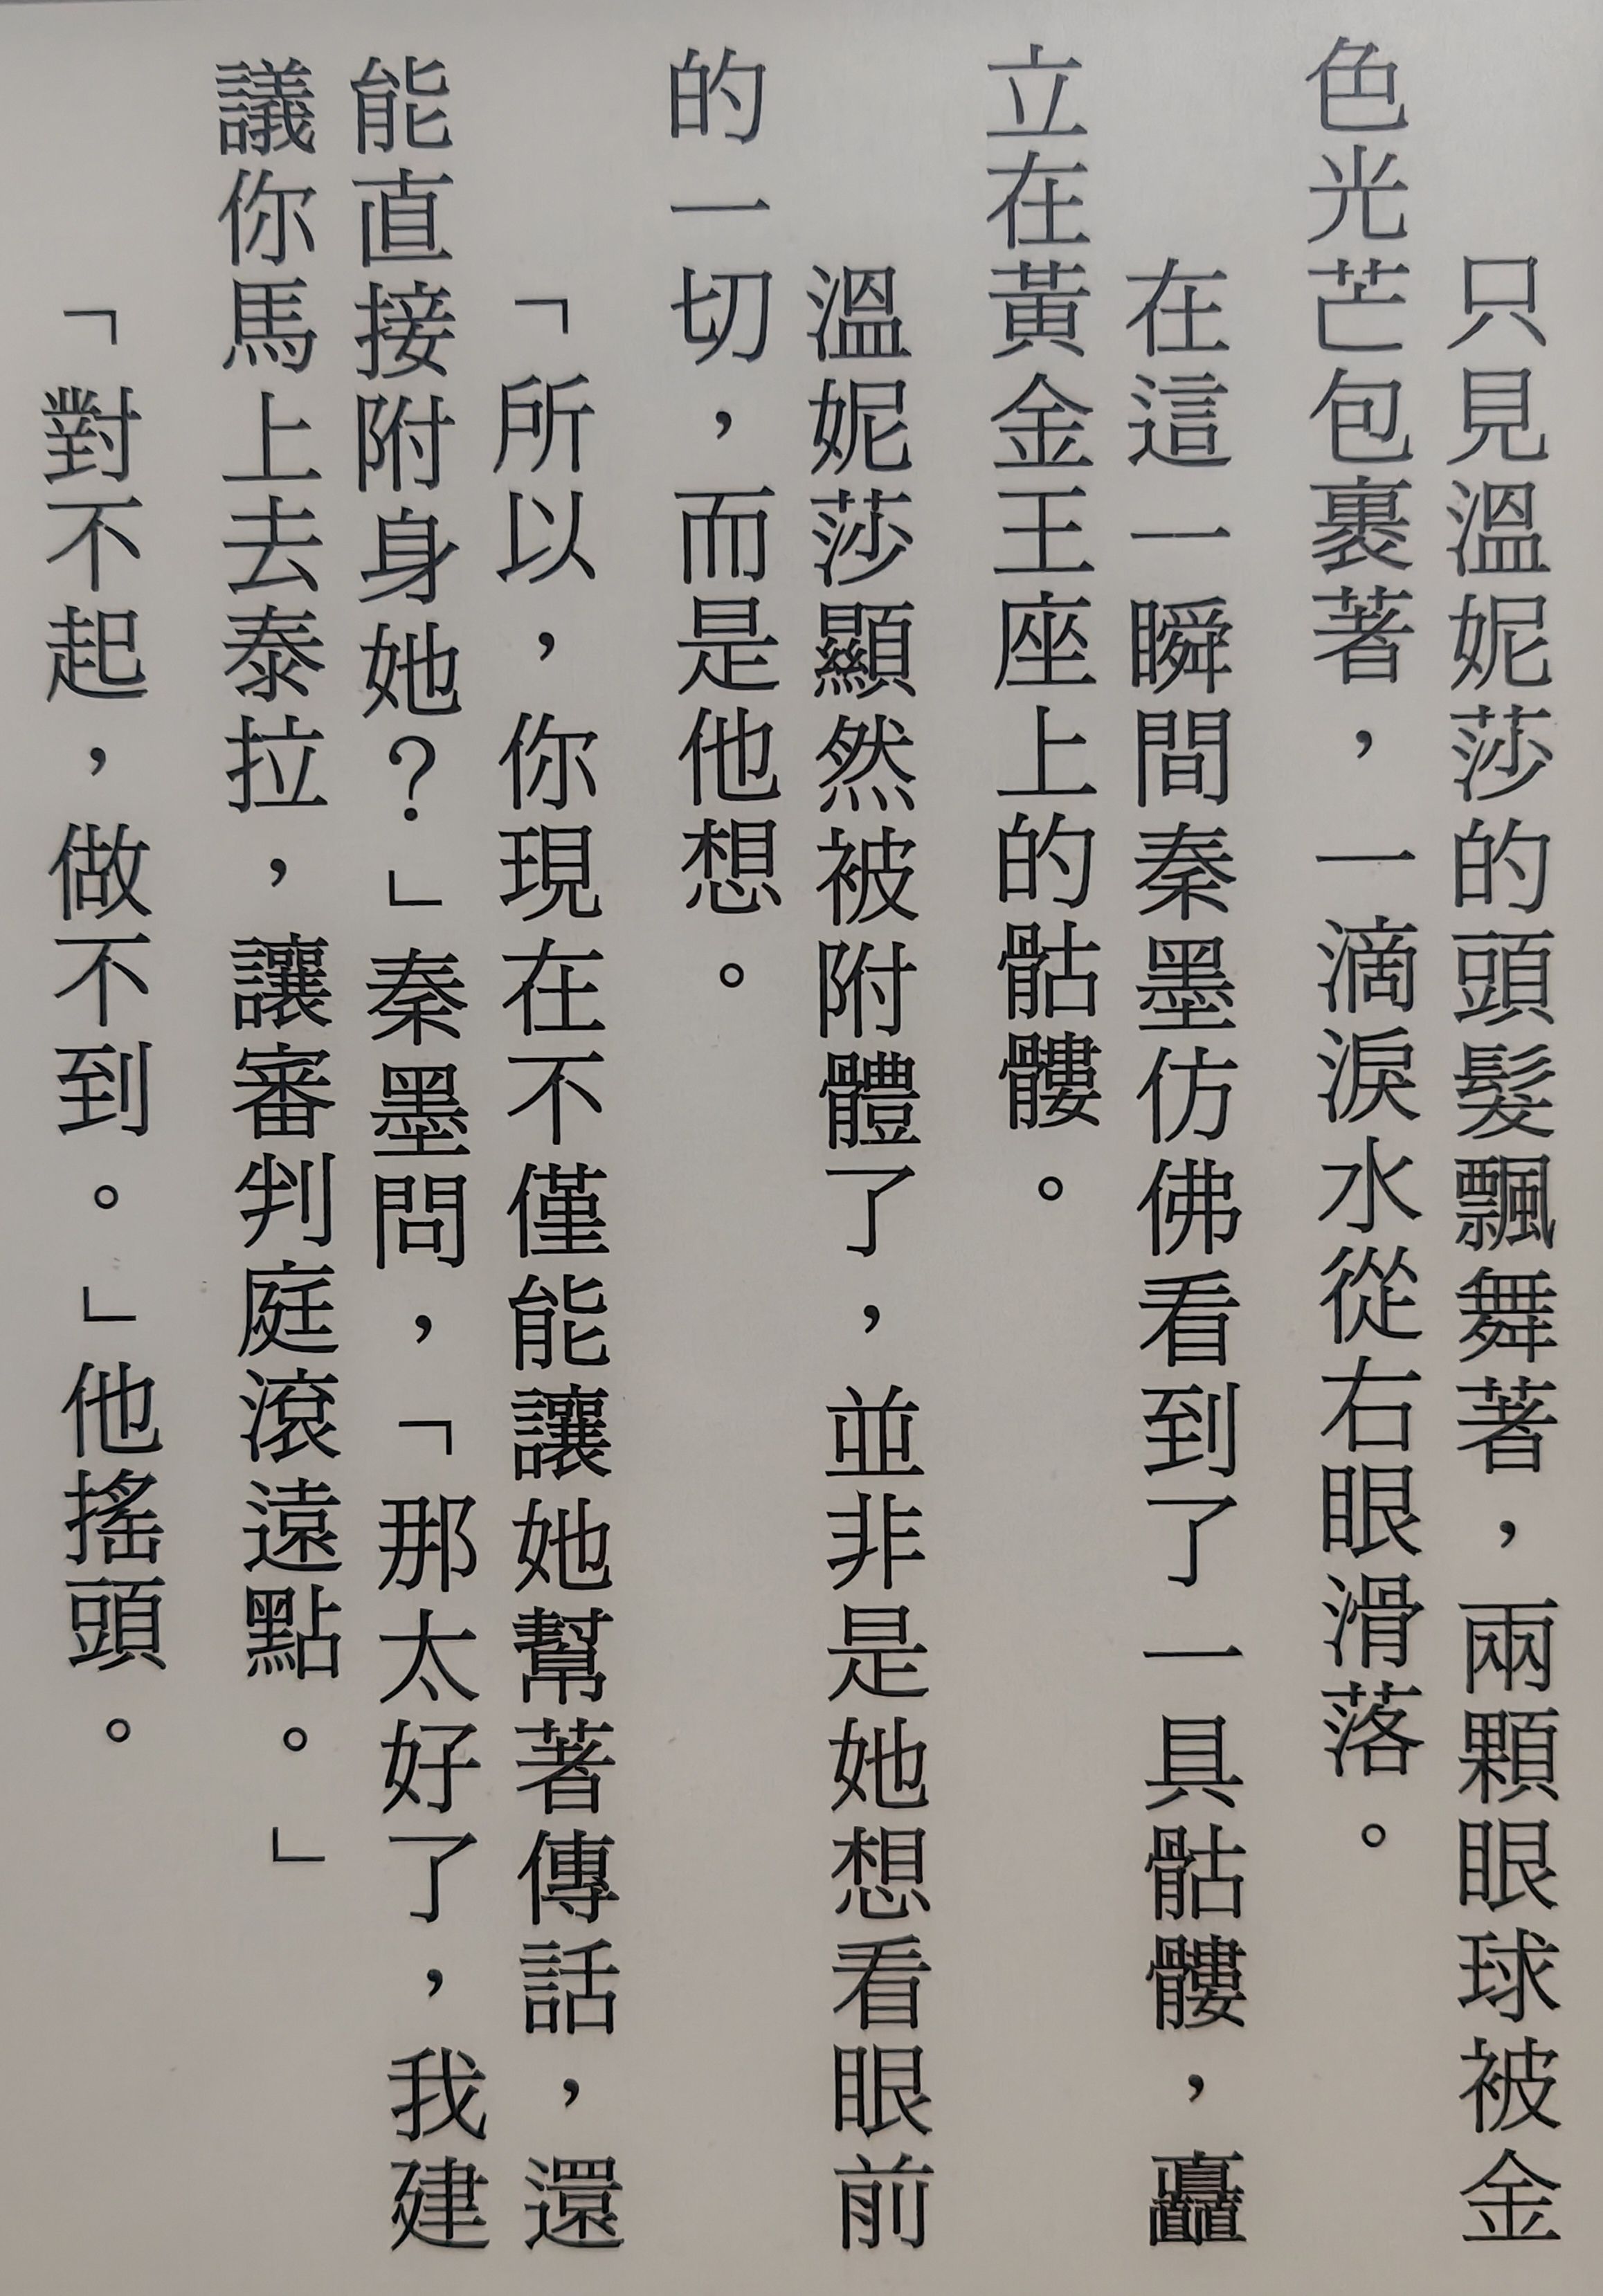 只見溫妮莎的頭髮飄舞著，兩顆眼球被金
色光芒包裹著，一滴淚水從右眼滑落。
在這一瞬間秦墨仿佛看到了一具骷髏，矗
立在黃金王座上的骷髏。
溫妮莎顯然被附體了，並非是她想看眼前
的一切，而是他想。
「所以，你現在不僅能讓她幫著傳話，還
能直接附身她？」秦墨問，「那太好了，我建
議你馬上去泰拉，讓審判庭滾遠點。」
「對不起，做不到。」他搖頭。